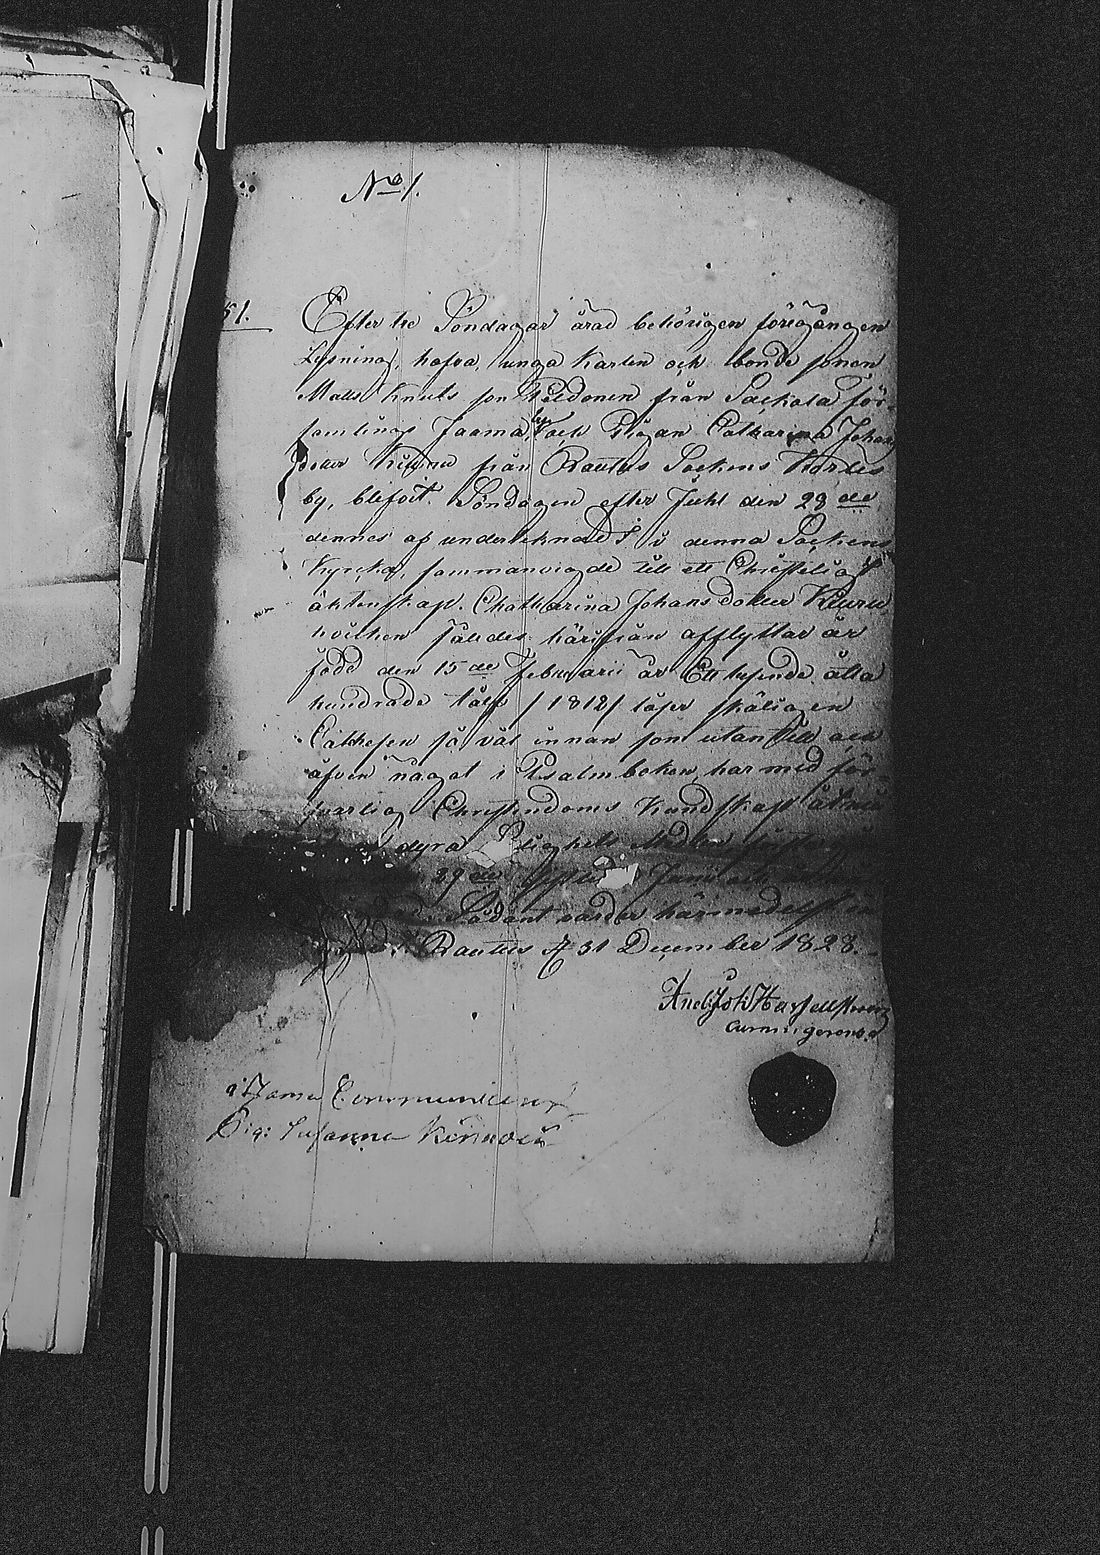 No 1.
51.
Efter tre Söndagar å rad behörigen föregången
Lysning, hafva unga Karlen och bonde sonen
Matts Knuts son från Sackola för-
samlings Jaama by och Pigan Catharina Johans
dotter Kiuru från Rautus Sockens
by, blifvit Söndagen efter Juhl den 28de
dennes af undertecknad i denna Sockens
Kyrcka, sammanvigde till ett Christeligt
äktenskap. Chatharina Johans dotter Kiuru
hvilken således härifrån afflyttar är
född den 15de Februarii år Ett tusende åtta
hundrade tolf /1812/ läser skäligen
Cathesen så väl innan som utan till och
äfven något i Psalmboken har med för-
svarlig Christendoms Kundskap
dyra Salighets Medlen sist
29de Junii
Sådant varder härmedelst in
Rautus d 31 December 1828.
And: Joh: 
curam gerens
a Jama Communicerat
Pig: Susanna